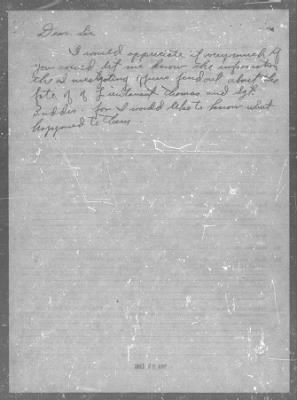 Dear Sir
I would appreciate it very much if
you could let me know the
the investigating about the
fate of of Lieutenant Thomas and Sgt.
for I would like to know what
happened to them